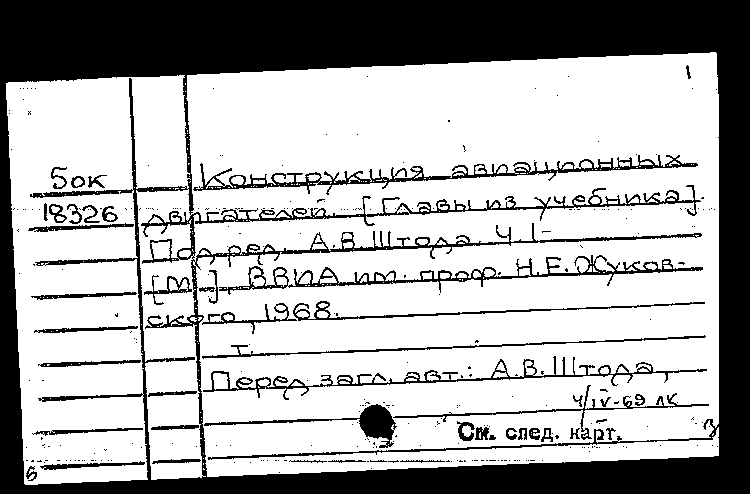 1
5ок Конструкция авиационных
18326 двигателей. [Главы из учебника]
Под ред. А.В.Штода. Ч.1-
[М], ВВИА им. проф. Н.Е.Жуков-
ского, 1968.
т.
Перед загл. авт.: А.В.Штода,
4/IV-69 лк
См. след. карт.